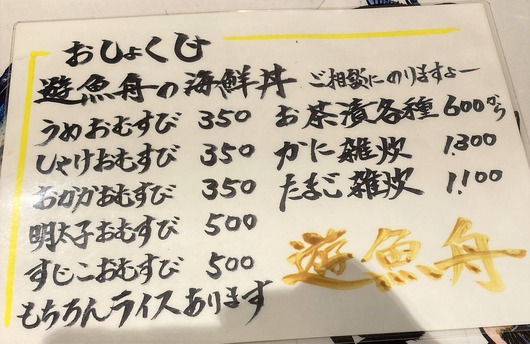 おしょくじ
遊魚舟の海鮮丼 ご相談にのりますよー
うめおむすび 350
しゃけおむすび 350
おかかおむすび 350
明太子おむすび 500
すじこおむすび 500
もちろんライスあります
お茶漬各種 600から
かに雑炊 1.300
たまご雑炊 1.100
遊魚舟